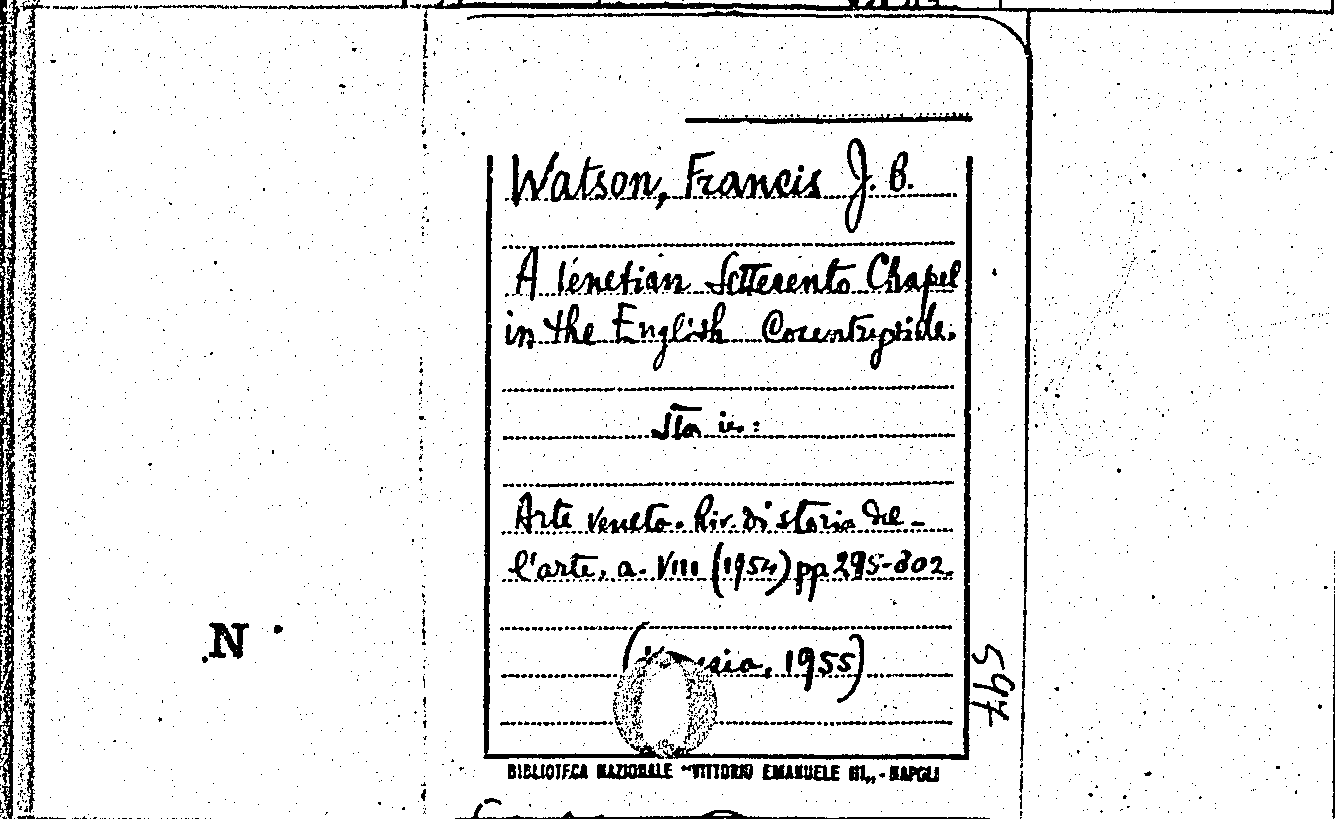 Watson, Francis J. B.
A Venetian Settecento Chapel
in the English Countryside.
Sta in:
Arte veneta. Riv. di storia del-
l'arte, a. VIII (1954) pp 295-302.
(Venezia, 1955)
597
N
BIBLIOTECA NAZIONALE "VITTORIO EMANUELE III„ - NAPOLI